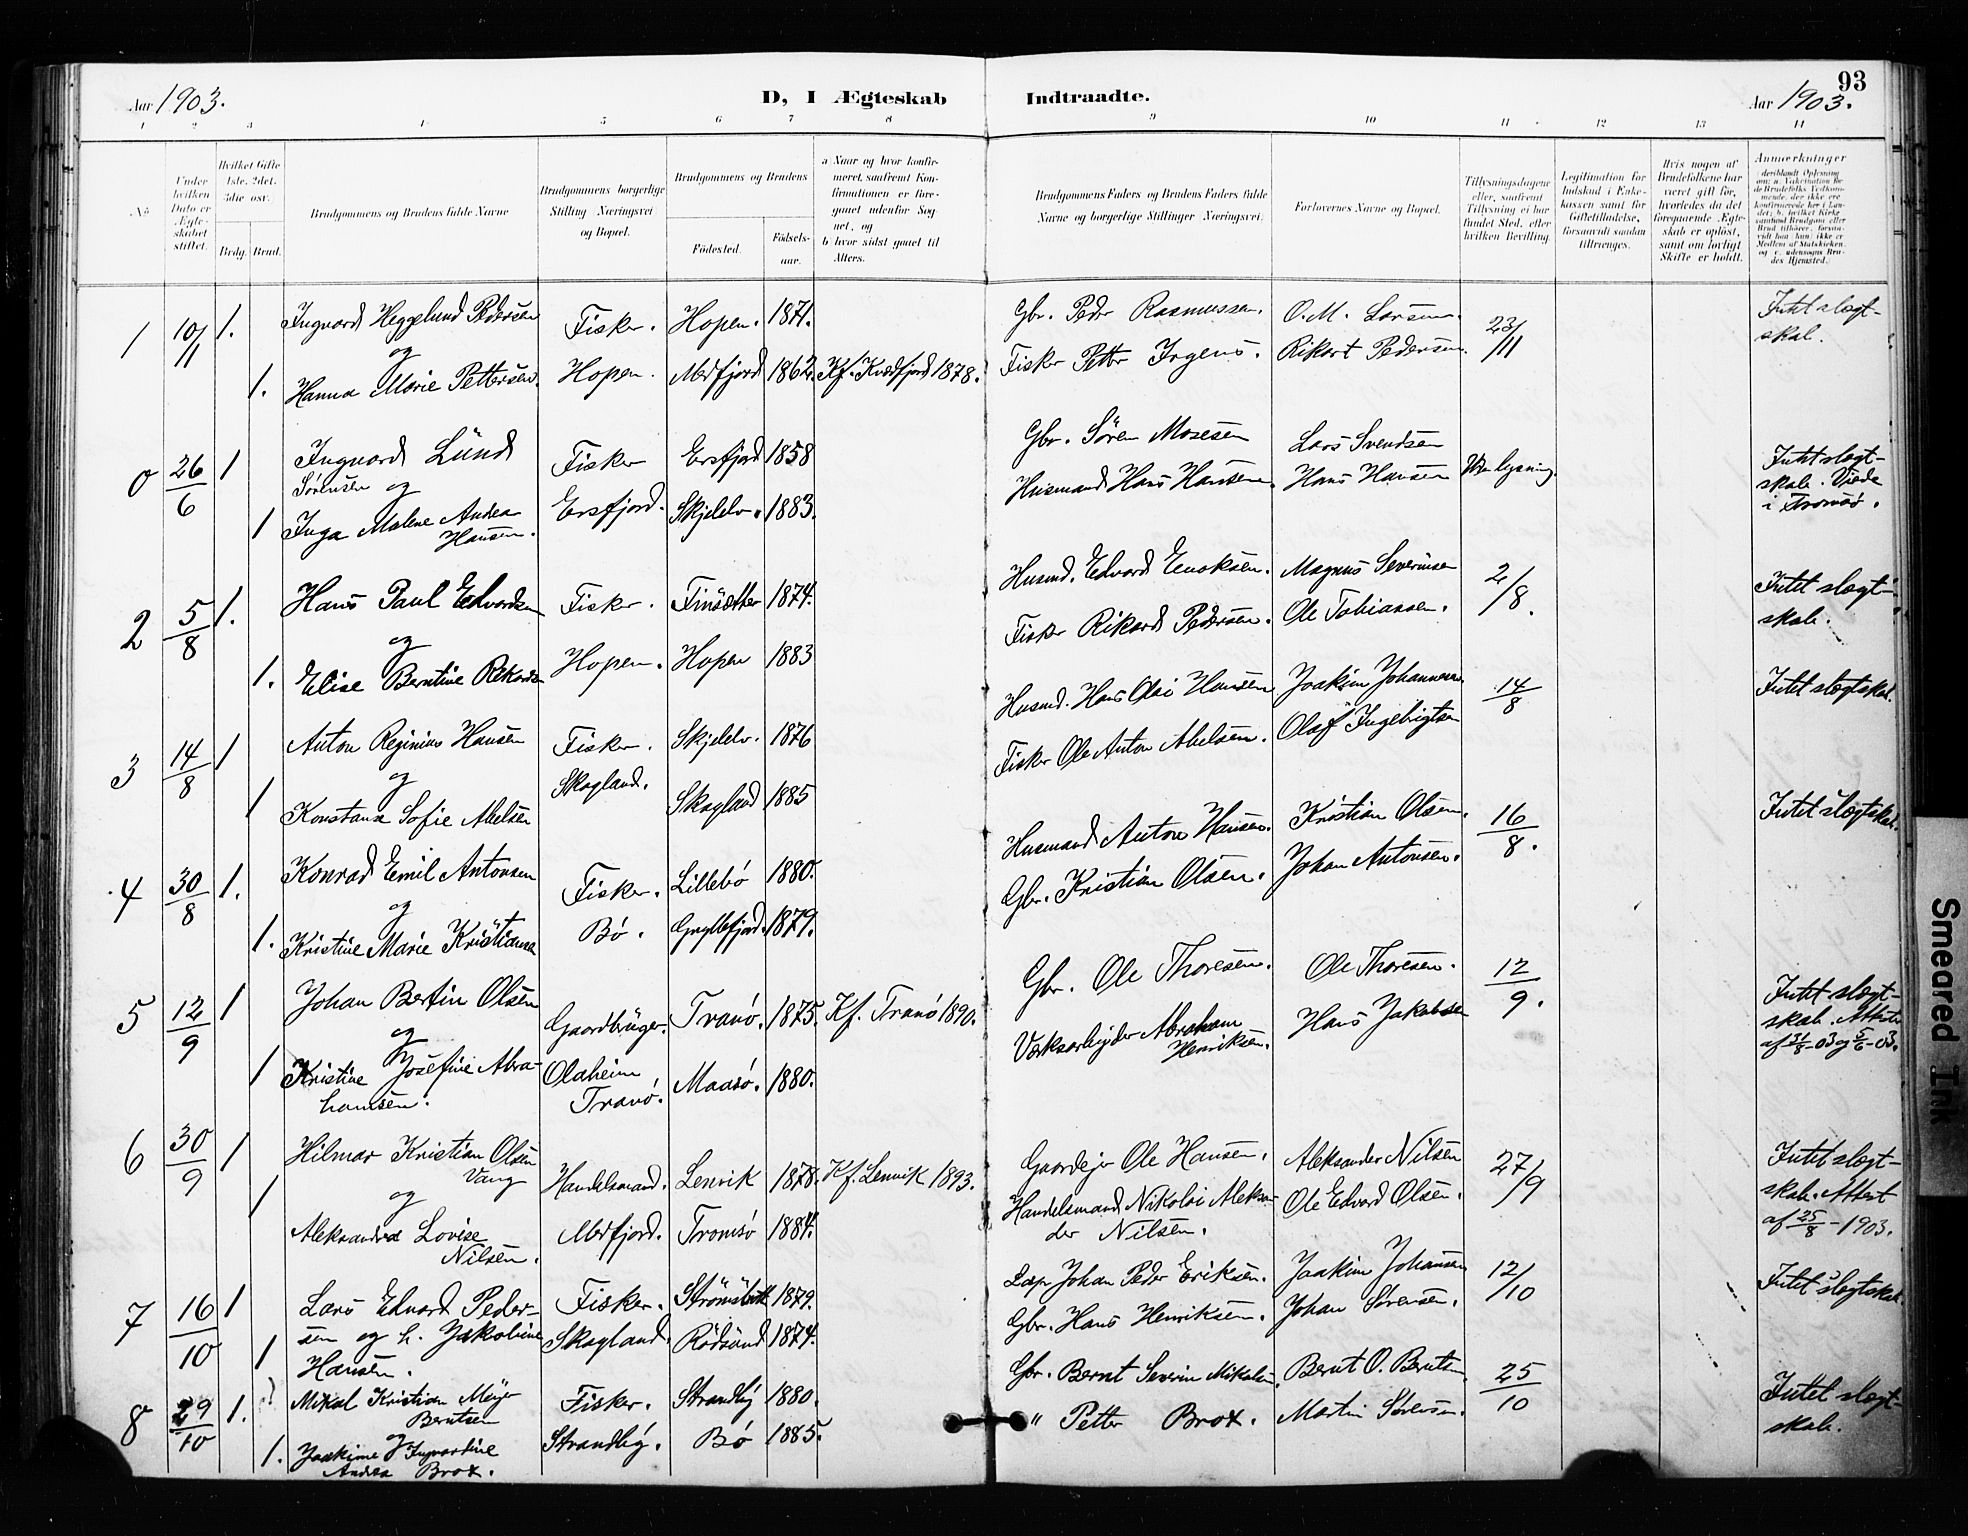 93
Aar 1903.
D, I Ægteskab Indtraadte.
Aar 1903.
1 2 3 4 5 6 7 8 9 10 11 12 13 14
No
Under hvilken Dato er Ægteskabet stiftet.
Hvilket Gifte 1ste, 2det, 3die osv.
Brdg. Brud.
Brudgommens og Brudens fulde Navne
Brudgommens borgerlige Stilling Næringsvei og Bopæl.
Brudgommens og Brudens
Fødested.
Fødsels-aar.
a Naar og hvor konfirmeret, saafremt Konfirmationen er foregaaet udenfor Sognet, og
b hvor sidst gaaet til Alters.
Brudgommens Faders og Brudens Faders fulde Navne og borgerlige Stillinger Næringsvei.
Forlovernes Navne og Bopæl.
Tillysningsdagene eller, saafremt Tillysning ei har fundet Sted, efter hvilken Bevilling.
Legitimation for Indskud i Enkekassen samt for Giftetilladelse, forsaavidt saadan tiltrænges.
Hvis nogen af Brudefolkene har været gift før, hvorledes da det foregaaende Ægteskab er opløst, samt om lovligt Skifte er holdt.
Anmerkninger
1 10/11 1. Ingvard Heggelund Pedersen Fisker. Hopen. 1871. Gbr. Peder Rasmussen. O. M. Larsen. 23/11 Intet slægt-
og skab.
1. Hanna Marie Pettersen. Hopen. Mefjord 1862. Kf. Kvædfjord 1878. Fisker Petter Irgens. Rikart Pedersen.
0 26/6 1 Ingvard Lünd Fisker Ersfjord 1858 Gbr. Sören Mosesen Lars Svendsen Uden lysning. Intet slægt-
Sørensen og skab. Viede
1 Inga Malene Andrea Ersfjord. Skjelelv. 1883. Husmand Hans Hansen. Hans Hansen i Tromsø.
Hansen.
2 5/8 1. Hans Paul Edvardsen Fisker. Finsæther 1874. Husmd. Edvard Enoksen. Magnus Severinsen 2/8. Intet slægt-
og skab.
1. Elise Berntine Rikardsen Hopen. Hopen 1883 Fisker Rikard Pedersen. Ole Tobiassen.
3 14/8 1 Anton Reginius Hansen Fisker. Skjelelv. 1876 Husmd. Hans Olai Hansen Joakim Johannesen 14/8 Intet slægtskab.
og
1 Konstanse Sofie Abelsen Skogland. Skogland 1885 Fisker Ole Anton Abelsen. Olaf Ingebrigtsen
4 30/8 1. Konrad Emil Antonsen Fisker. Lillebö 1880. Husmand Anton Hansen. Kristian Olsen. 16/8. Intet slægtskab.
og
1. Kristine Marie Kristiansen Bö. Gryllefjord. 1879. Gbr. Kristian Olsen. Johan Antonsen.
5 12/9 1 Johan Bertin Olsen Gaardbruger. Tranö. 1875. Kf. Tranö 1890. Gbr. Ole Thoresen. Ole Thoresen. 12/9. Intet slægt-
og skab. Attester
1 Kristine Josefine Abra- Olaheim Maasö. 1880. Værksarbejder Abraham Hans Jakobsen af 31/8-03 og 5/6-03.
hamsen. Tranö. Henriksen.
6 30/9 1 Hilmar Kristian Olsen Handelsmand. Lenvik 1878. Kf. Lenvik 1893. Gaardejer Ole Hansen. Aleksander Nilsen 27/9 Intet slægt-
Vang skab. Attest
1 og Handelsmand Nikolai Aleksan- Ole Edvard Olsen. af 25/8-1903.
Aleksandra Lovise Mefjord. Tromsö 1884. der Nilsen.
Nilsen.
7 16/10 1 Lars Edvard Peder- Fisker. 1879. Lap Johan Peder Eriksen. Joakim Johansen 12/10 Intet slegtskab.
1 sen og h. Jakobine Skogland. Rödsand 1874. Gbr. Hans Henriksen. Johan Sørensen.
Hansen.
8 29/10 1. Mikal Kristian Meyer Fisker. Strandby 1880. Gbr. Bernt Severin Mikalsen Bernt O. Berntsen 25/10 Intet slægt-
Berntsen skab.
1. og Strandby. Bö 1885. " Petter Brox. Martin Sørensen.
Joakime Ingvardine
Andrea Brox.
Smeared Ink